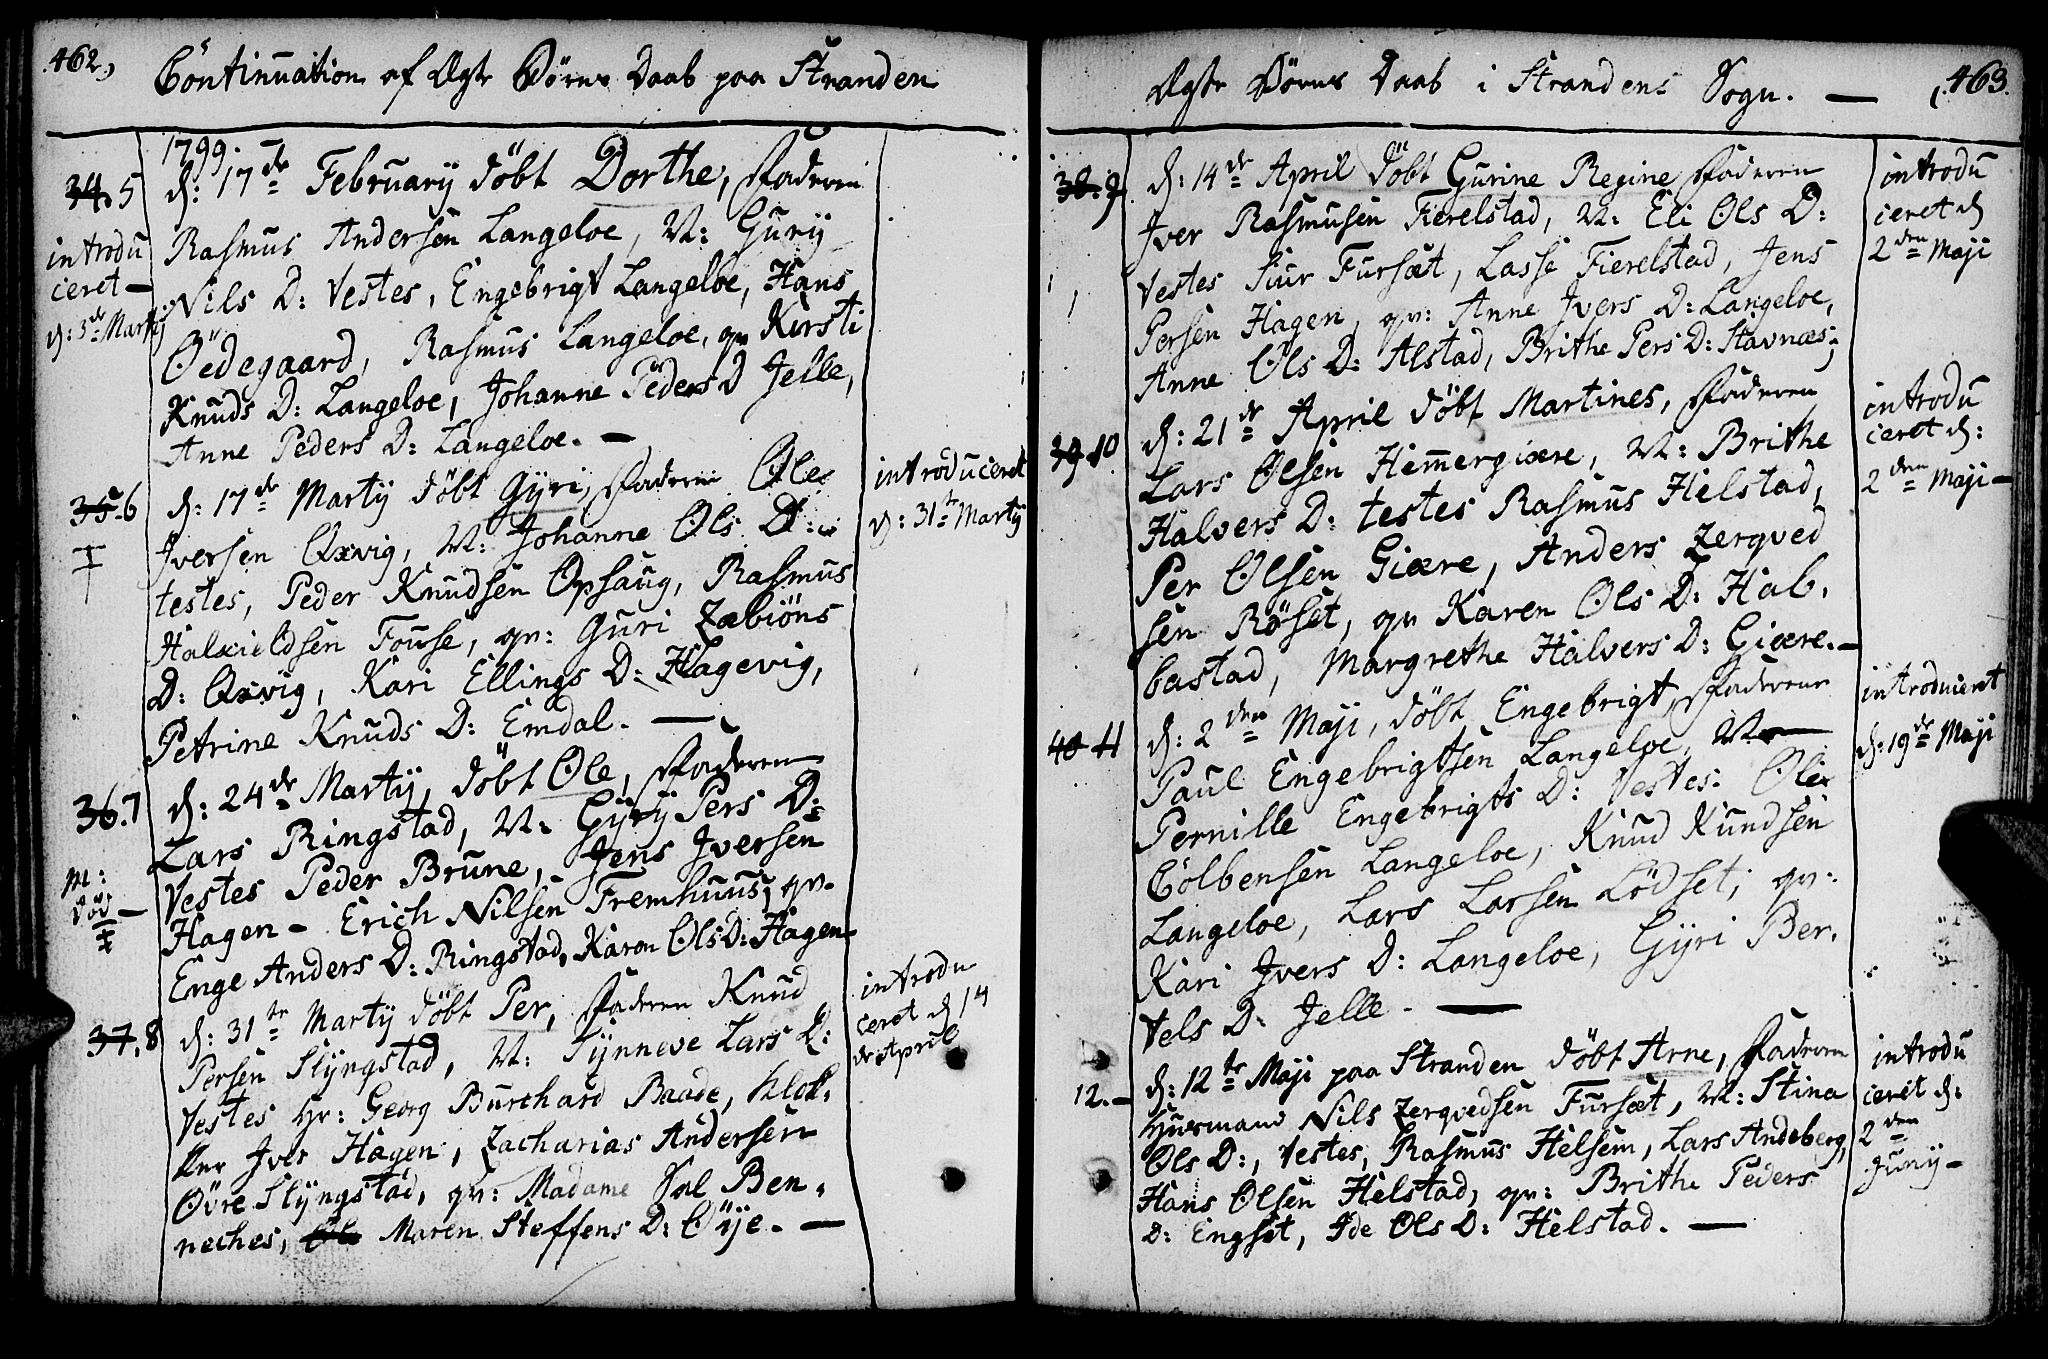 462,
Continuation af Ægte Børns Daab paa Stranden
1799.
34. 5
d: 17de February döbt Dorthe, Faderen
Rasmus Andersen Langeloe, M: Gurÿ
introdu
ceret –
d: 3de Martÿ
Nils D: Testes, Engebrigt Langeloe, Hans
Öedegaard, Rasmus Langeloe, qv Kirsti
Knuds D: Langeloe, Johanne Peders D Jelle,
Anne Peders D: Langeloe. –
35. 6
d: 17de Martÿ döbt Gÿri, Faderen Ole
Iversen Qxvig, M: Johanne Ols D:
testes, Peder Knudsen Opsaug, Rasmus
Halxieldsen Fouse, qv: Guri Zæbiöns
D: Qxvig, Kari Ellings D: Hagevig,
Petrine Knuds D: Emdal. –
introduceret
d: 31te Martÿ
36. 7
d: 24de Martÿ, döbt Ole, Faderen
Lars Ringstad, M: Gÿrÿ Pers D:
Testes Peder Brune, Jens Iversen
Hagen – Erich Nilsen Fremhuus, qv.
Enge Anders D: Ringstad, Karen Ols D: Hagen
M:
död –
37. 8
d: 31te Martÿ döbt Per, Faderen Knud
Persen Slÿngstad, M: Sÿnneve Lars D:
Testes Hr: Georg Burchard Baade, Klok-
ker Iver Hagen, Zacharias Andersen
Övre Slÿngstad, qv: Madame Sal Ben-
neches, Maren Steffens D: Öÿe. –
introdu
ceret d 14
de April
Ægte Börns Daab i Strandens Sogn. –
463.
38. 9
d: 14de April döbt Gurine Regine Faderen
Iver Rasmusen Fierelstad, M: Eli Ols D:
Testes Siur Fursæt, Lasse Fierelstad, Jens
Persen Hagen, qv: Anne Ivers D: Langeloe,
Anne Ols D: Alstad, Brithe Pers D: Stavnæs;
introdu
ceret d
2den Maji
39 10.
d: 21de April döbt Martines, Faderen
Lars Olsen Hem̅ergiære, M: Brithe
Halvers D: testes Rasmus Helstad,
Per Olsen Giære, Anders Zerqved
sen Röset, qv Karen Ols D: Hab.
bastad, Margrethe Halvers D: Giære. –
introdu
ceret d:
2den Maji –
40 11
d: 2den Maji, döbt Engebrigt, Faderen
Paul Engebrigtsen Langeloe, M
Pernille Engebrigts D: Testes: Ole
Colbensen Langeloe, Knud Kundsen
Langeloe, Lars Larsen Lödset; qv:
Kari Ivers D: Langeloe, Gÿri Ber.
tels D: Jelle. –
introduceret
d: 19de Maji
12. –
d: 12te Maji paa Stranden döbt Arne, Faderen
Huusmand Nils Zerqvedsen Fursæt, M: Stina
Ols D:, Testes, Rasmus Helsem, Lars Andeberg,
Hans Olsen Helstad, qv: Brithe Peders
D: Engset, Ide Ols D: Helstad. –
introdu
ceret d:
2den
Junÿ –